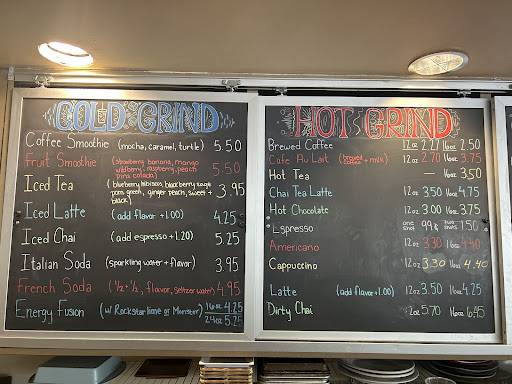 COLD GRIND
Coffee Smoothie (mocha, caramel, turtle) 5.50
Fruit Smoothie (strawberry, banana, mango
wildberry, raspberry, peach
pina colada) 5.50
Iced Tea (blueberry hibiscus, blackberry sage
pom green, ginger peach, sweet +
black) 3.95
Iced Latte (add flavor +1.00) 4.25
Iced Chai (add espresso +1.20) 5.25
Italian Soda (sparkling water + flavor) 3.95
French Soda (1/2 + 1/2, flavor, seltzer water) 4.95
Energy Fusion (w/ Rockstar lime or Monster) 16oz 4.25
24oz 5.25
HOT GRIND
Brewed Coffee 12oz 2.27 16oz 2.50
Cafe Au Lait (brewed coffee + milk) 12oz 2.70 16oz 3.75
Hot Tea — 16oz 3.50
Chai Tea Latte 12oz 3.50 16oz 4.75
Hot Chocolate 12oz 3.00 16oz 3.75
Espresso one shot 99¢ two shots 1.50
Americano 12oz 3.30 16oz 4.40
Cappuccino 12oz 3.30 16oz 4.40
Latte (add flavor +1.00) 12oz 3.50 16oz 4.25
Dirty Chai 12oz 5.70 16oz 6.45